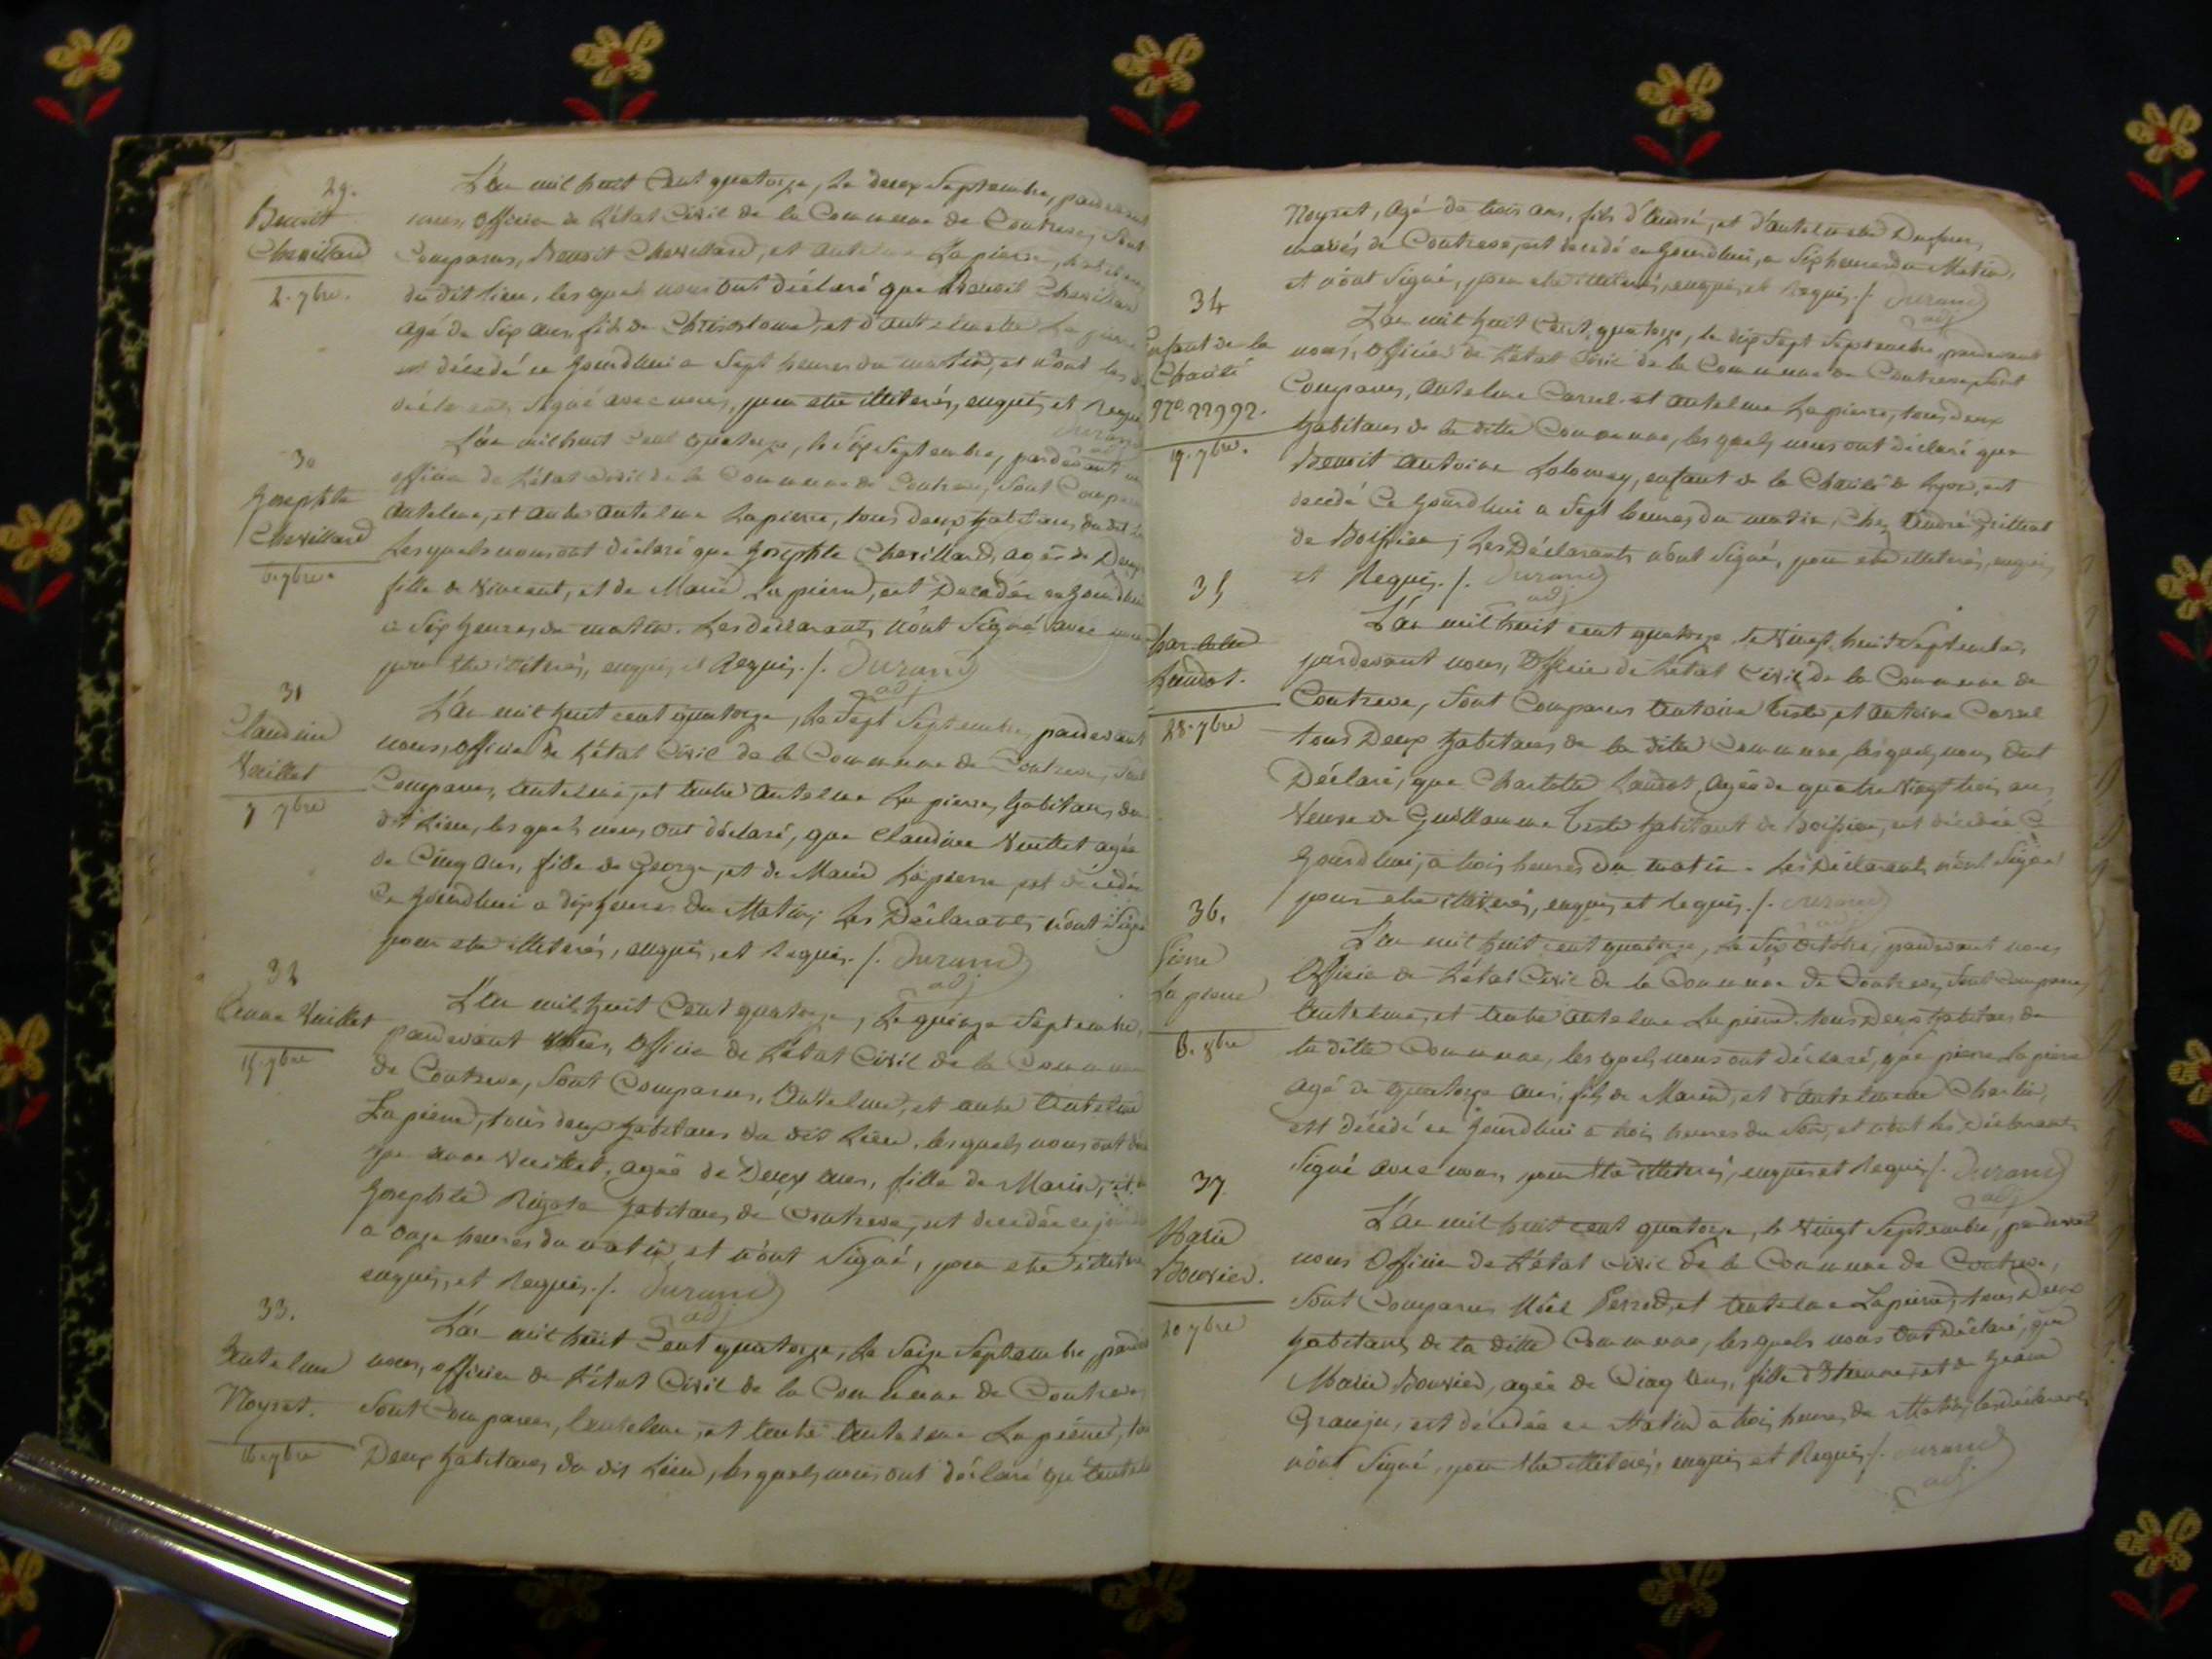 29.
Benoit
Chevillard
2. 7bre.
L'an mil huit Cent quatorze, Le deux Septembre, pardevant
nous, Officier de L'état Civil de la Commune de Contrevoz, Sont
Comparus, Benoit Chevillard, et antelme Lapierre, habitans
du dit lieu, les quels nous ont déclaré que Benoit Chevillard
agé de Six ans, fils de Chrisostome, et d'antelmette Lapierre
est décédé ce Jourdhui a Sept heures du matin, et n'ont les
déclarants Signé avec nous, pour etre illiterés, enquis et Requis
Durand
adj
30
Josephte
Chevillard
6. 7bre.
L'an mil huit Cent quatorze, le Six Septembre, pardevant
officier de L'état Civil de la Commune de Contrevoz, Sont Comparus
antelme, et autre antelme Lapierre, tous deux habitans du dit
Lesquels nous ont déclaré que Josephte Chevillard, agée de Deux
fille de Vincent, et de Marie Lapierre, est Décédée ce Jourdhui
a Six heures du matin. Les déclarants n'ont Signé avec nous
pour etre illiterés, enquis et Requis. /. Durand
adj
31
Claudine
Vuillet
7 7bre
L'an mil huit cent quatorze, Le Sept Septembre, pardevant
nous, Officier de L'état Civil de la Commune de Contrevoz, Sont
Comparus, Antelme, et autre antelme Lapierre, habitans du
dit Lieu, les quels nous ont déclaré, que Claudine Vuillet agée
de Cinq ans, fille de George, et de Marie Lapierre est décédée
Ce Jourdhui a dix heures du Matin; Les Déclarants n'ont Signé
pour etre illiterés, enquis, et Requis. /. Durand
adj
32
Anne Vuillet
15. 7bre
L'an mil huit Cent quatorze, Le quinze Septembre,
pardevant Nous, Officier de L'état Civil de la Commune
de Contrevoz, Sont Comparus, Antelme, et autre Antelme
Lapierre, tous deux habitans du dit Lieu, les quels nous ont
que anne Vuillet, agée de Deux ans, fille de Marin, et
Josephte Rigota habitans de Contrevoz, est décédée ce
a onze heures du matin et n'ont Signé, pour etre illiterés
enquis, et Requis. /. Durand
adj
33.
Antelme
Noyret.
16. 7bre
L'an mil huit Cent quatorze, Le Seize Septembre, pardevant
nous, officier de L'état Civil de la Commune de Contrevoz,
Sont Comparus, Antelme, et autre Antelme Lapierre, tous
Deux habitans du dit Lieu, les quels nous ont déclaré qu'Antelme
Noyret, Agé de trois ans, fils d'André, et d'antelmette
mariés de Contrevoz, est décédé ce Jourdhui, a Six heures du Matin,
et n'ont Signé, pour etre illiterés, enquis, et Requis. /. Durand
adj
34
Enfant de la
Charité
N°. 22992.
17. 7bre.
L'an mil huit Cent quatorze, le dix Sept Septembre, pardevant
nous, Officier de L'état Civil de la Commune de Contrevoz, Sont
Comparus, Antelme Carrel et antelme Lapierre, tous deux
habitans de la ditte Commune, les quels nous ont déclaré que
Benoit Antoine, enfant de la Charité de Lyon, est
décédé Ce Jourdhui a Sept heures du matin, Chez André
de Boissieu; Les Déclarants n'ont Signé, pour etre illiterés, enquis,
et Requis. /. Durand
adj
35
Charlotte
Landot.
28. 7bre
L'an mil huit cent quatorze le Vingt huit Septembre,
pardevant nous, Officier de L'état Civil de la Commune de
Contrevoz, Sont Comparus Antoine Teste, et Antoine Carrel
tous Deux habitans de la ditte Commune, les quels nous Ont
Déclaré, que Charlotte Landot, Agée de quatre Vingt trois ans
Veuve de Guillaume Teste habitant de Boissieu, est décédée Ce
Jourdhui, a trois heures du matin. Les Déclarants n'ont Signé
pour etre illiterés, enquis et Requis. /. Durand
adj
36.
Pierre
Lapierre
6. 8bre
L'an mil huit cent quatorze, Le Six Octobre, pardevant nous
Officier de L'état Civil de la Commune de Contrevoz, Sont Comparus,
Antelme, et Autre Antelme Lapierre, tous Deux habitans de
la ditte Commune, les quels nous ont déclaré, que pierre Lapierre
Agé de quatorze ans, fils de Marin, et d'Antelmette Charlin,
est décédé ce Jourdhui a trois heures du Soir, et n'ont les Déclarants
Signé avec nous, pour etre illiterés, enquis et Requis /. Durand
adj
37.
Marie
Bouvier.
20 7bre
L'an mil huit cent quatorze, le Vingt Septembre, pardevant
nous Officier de L'état Civil de la Commune de Contrevoz,
Sont Comparus Noël Perrod, et Antelme Lapierre, tous Deux
habitans de la ditte Commune, les quels nous Ont déclaré, que
Marie Bouvier, agée de Cinq Ans, fille d'Etienne, et de Jeanne
est décédée ce Matin a trois heures du Matin, les déclarants
n'ont Signé, pour etre illiterés, enquis et Requis /. Durand
adj.